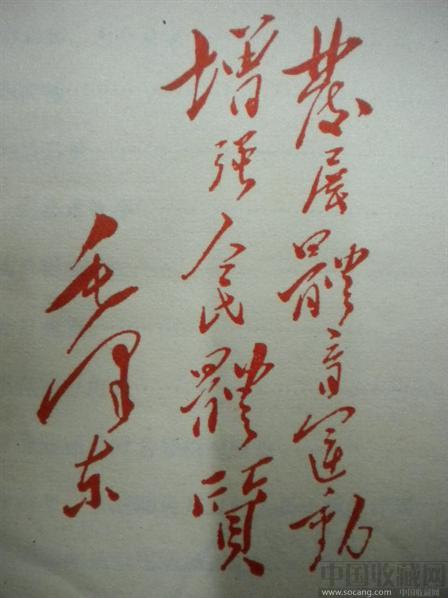 發展體育運動
增强人民體質
毛泽东
中国收藏网
www.socang.com 中国收藏网